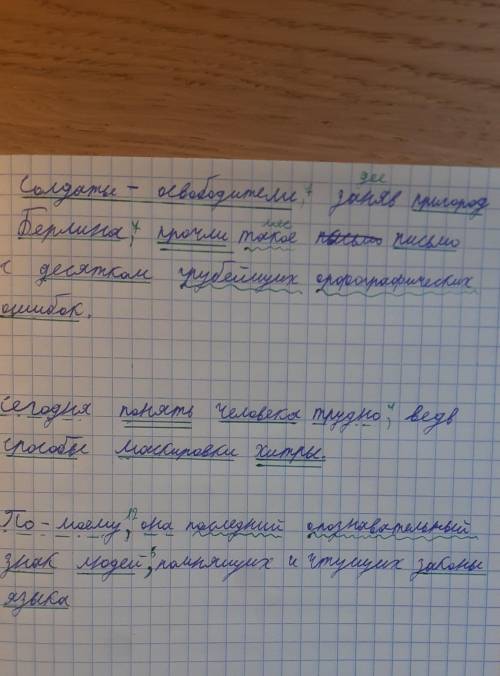 дее
Солдаты - освободители,⁴ заняв пригород
мес
Берлина,⁴ прочли такое письмо
с десятком грубейших орфографических
ошибок.
сегодня понять человека трудно,⁴ ведь
способы маскировки хитры.
По-моему,¹² она последний опознавательный
знак людей,⁵ помнящих и чтущих законы
языка